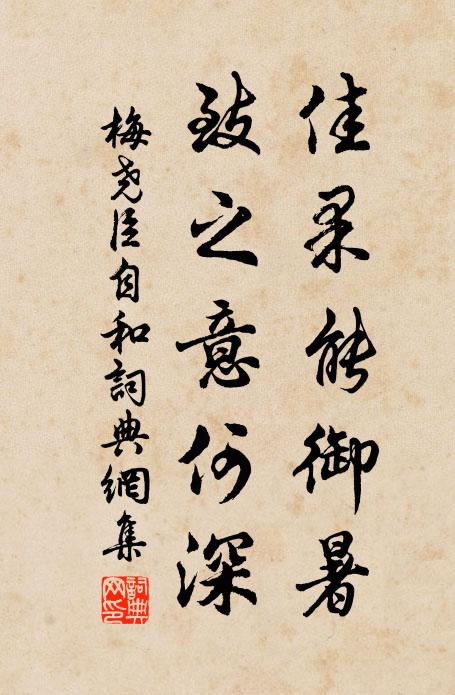 佳果能御暑
致之意何深
梅尧臣自和詞典網集
詞典網印